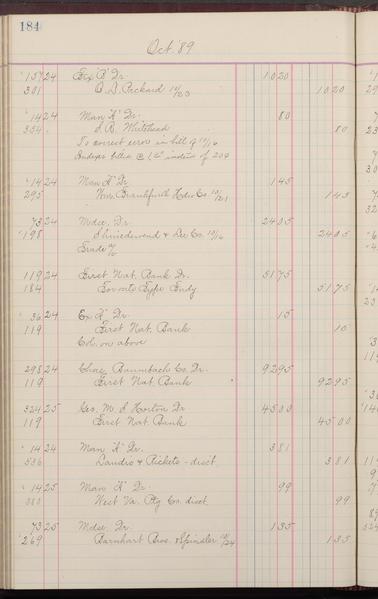 184
Oct '89
157 24 Exp 'B' Dr. 10 20
301 B. D. Packard 10/23 10 20
14 24 Man 'K' Dr. 80
334 J. R. Whitehead 80
To correct error in bill of 10/16
@ 1 20 instead of 20¢
14 24 Man 'K' Dr. 1 45
295 Wm. Frankfurth Hdw Co. 10/21 1 45
73 24 Mdse. Dr. 24 05
198 Shniedewend & Lee Co. 10/16 24 05
119 24 First Nat. Bank Dr. 51 75
184 Toronto Type Fndy 51 75
36 24 Ex 'K' Dr. 15
119 First Nat. Bank 15
Col. on above
298 24 Chas. Baumbach Co. Dr. 92 95
119 First Nat. Bank 92 95
324 25 Geo. M. S. Horton Dr 45 00
119 First Nat. Bank 45 00
14 24 Man 'K' Dr. 3 81
Landro & Rickets - disct. 3 81
14 25 Man 'K' Dr. 99
383 West Va. Ptg Co. disct 99
73 25 Mdse. Dr. 1 35
269 Barnhart Bros. & Spindler 10/24 1 35